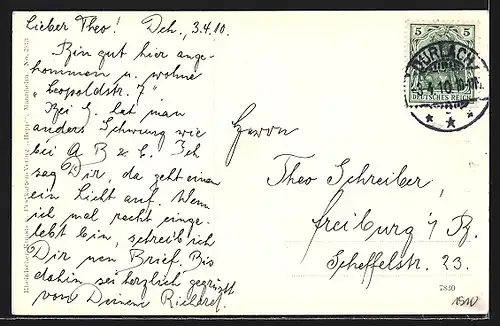 Lieber Theo! Dch., 3.4.10.
Bin gut hier ange-
kommen u. wohne
"Leopoldstr. 7"
Bei G. hat man
anders Schwung wie
bei A B & C. Ich
sag Dir, da geht einem
ein Licht auf. Wenn
ich mal recht einge-
lebt bin, schreib ich
Dir nen Brief. Bis
dahin sei herzlich gegrüßt
von Deinem Richard.
Herrn
Theo Schreiber,
Freiburg i/ B.
Scheffelstr. 23.
5 5
DURLACH
DEUTSCHES REICH
7840
1910